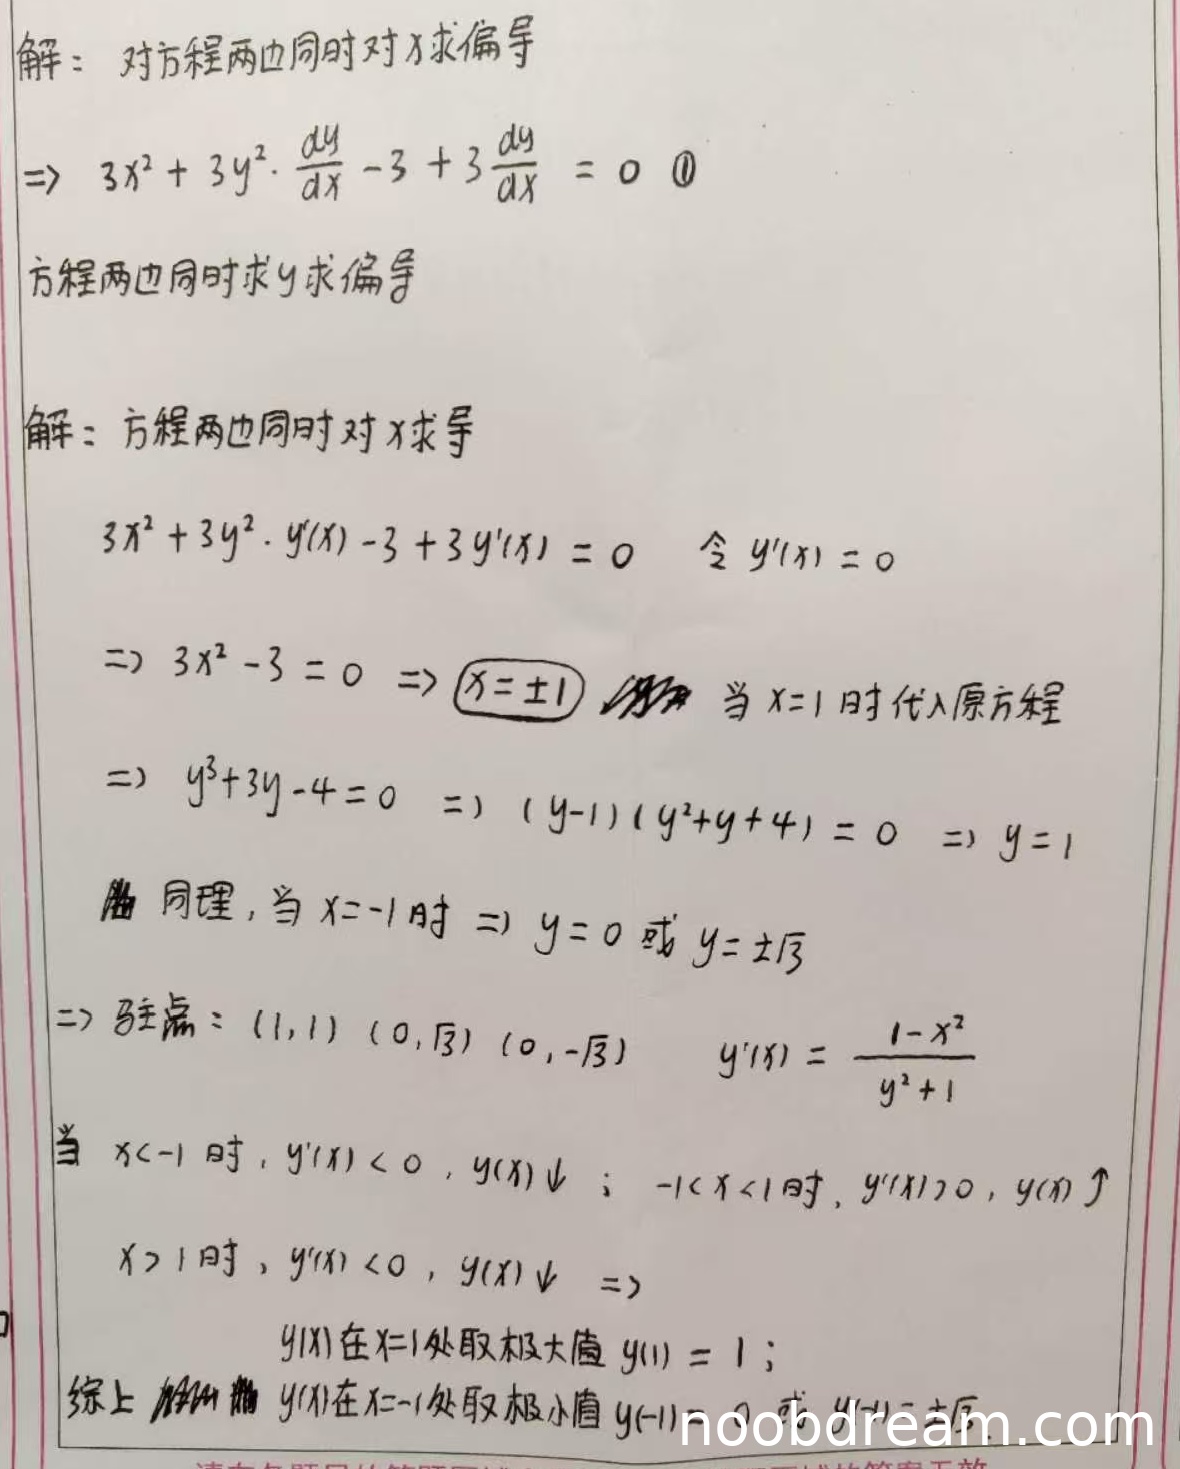 解：对方程两边同时对x求偏导
=> 3x² + 3y²·dy/dx - 3 + 3dy/dx = 0 ①
方程两边同时求y求偏导
解：方程两边同时对x求导
3x² + 3y²·y'(x) - 3 + 3y'(x) = 0 令 y'(x) = 0
=> 3x² - 3 = 0 => x = ±1 当 x=1 时代入原方程
=> y³+3y-4=0 => (y-1)(y²+y+4) = 0 => y=1
同理, 当 x=-1时 => y=0 或 y=±√3
=> 驻点：(1,1) (0,√3) (0,-√3) y'(x) = (1-x²)/(y²+1)
当 x<-1 时, y'(x)<0, y(x)↓ ; -1<x<1时, y'(x)>0, y(x)↑
x>1时, y'(x)<0, y(x)↓ =>
y(x)在x=1处取极大值 y(1) = 1;
综上 y(x)在x=-1处取极小值 y(-1)=0 或 y(-1)=±√3.
noobdream.com